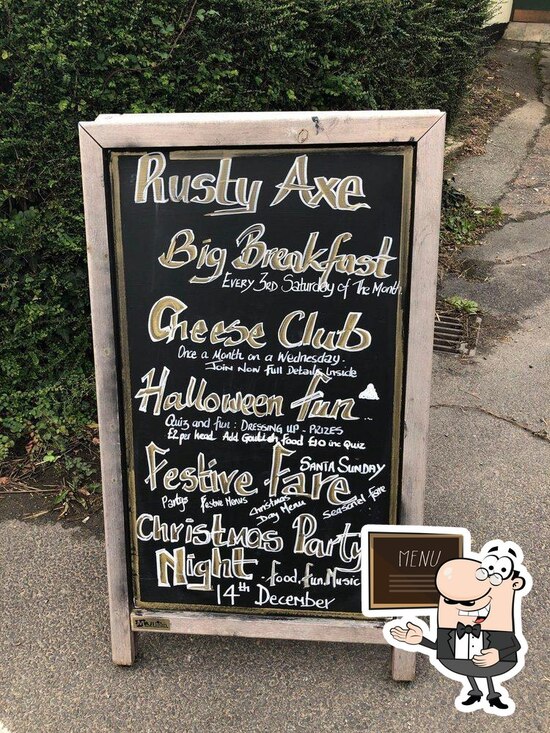 Rusty Axe
Big Breakfast
Every 3rd Saturday of The Month
Cheese Club
Once a Month on a Wednesday.
Join Now full Details Inside
Halloween fun
Quiz and fun : DRESSING UP - PRIZES
£2 per head Add Goulish food £10 inc Quiz
Festive Fare
SANTA SUNDAY
Partys Festive Menus Christmas Day Menu Seasonal Fare
Christmas Party
Night - food, fun, Music
14th December
MENU